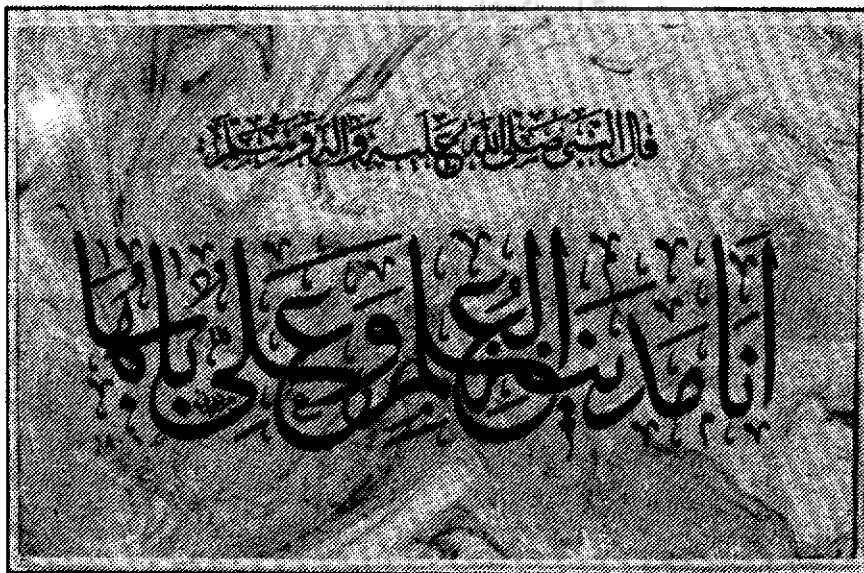 قال النبي صلى الله عليه وآله وسلم
أنا مدينة العلم وعلي بابها